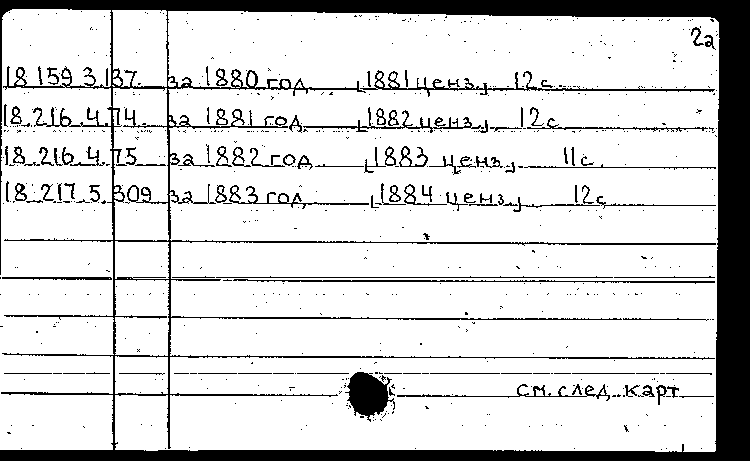 2а
18.159.3.137. за 1880 год [1881 ценз.] 12с.
18.216.4.74. за 1881 год [1882 ценз.] 12с
18.216.4.75 за 1882 год [1883 ценз.] 11с.
18.217.5.309 за 1883 год [1884 ценз.] 12с
см. след. карт.